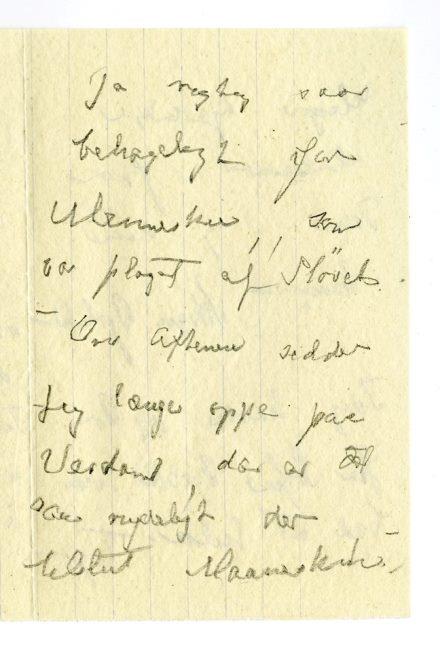 Ja rigtig saa
behageligt for
Mennesker, som
var plaget af Støvet.
– Om Aftenen sidder
jeg længe oppe paa
Verdant, der er
saa nydeligt der
Maaneskin. –